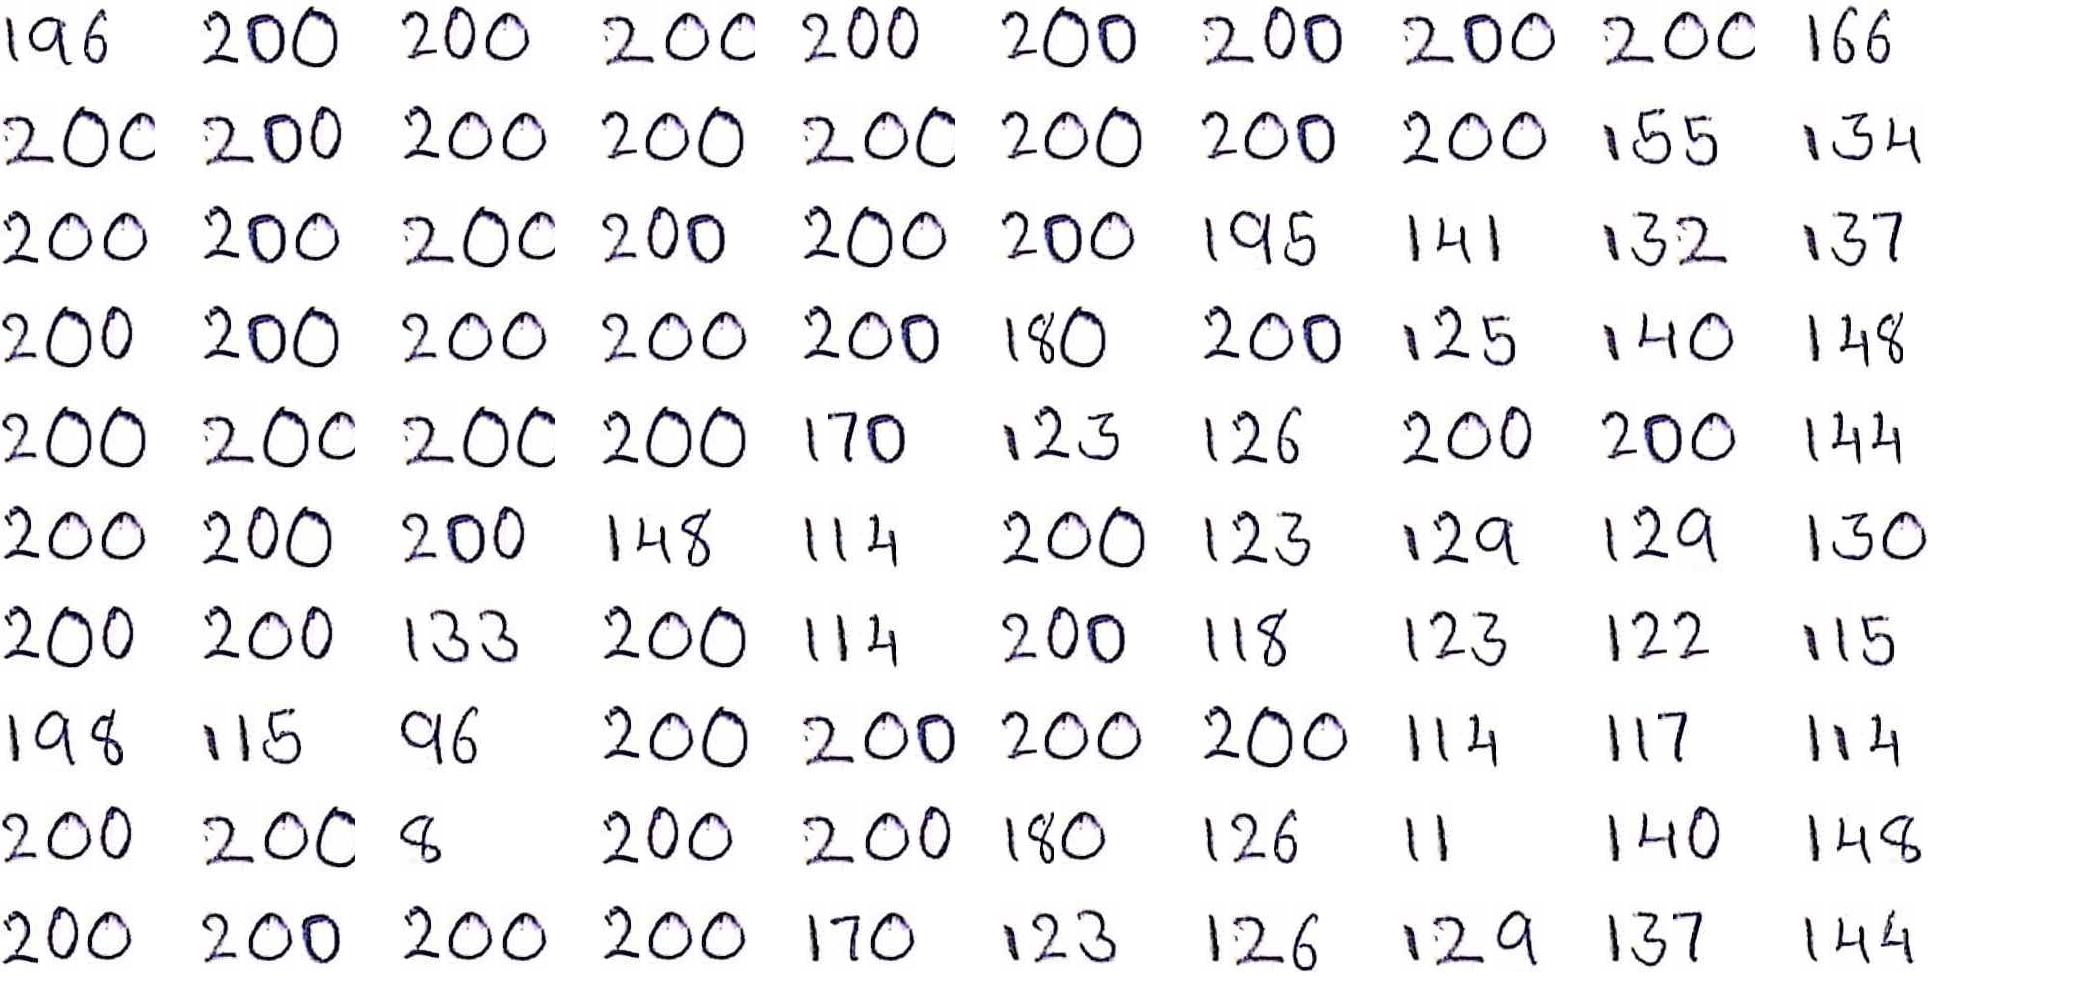 196 200 200 200 200 200 200 200 200 166
200 200 200 200 200 200 200 200 155 134
200 200 200 200 200 200 195 141 132 137
200 200 200 200 200 180 200 125 140 148
200 200 200 200 170 123 126 200 200 144
200 200 200 148 114 200 123 129 129 130
200 200 133 200 114 200 118 123 122 115
198 115 96 200 200 200 200 114 117 114
200 200 8 200 200 180 126 11 140 148
200 200 200 200 170 123 126 129 137 144